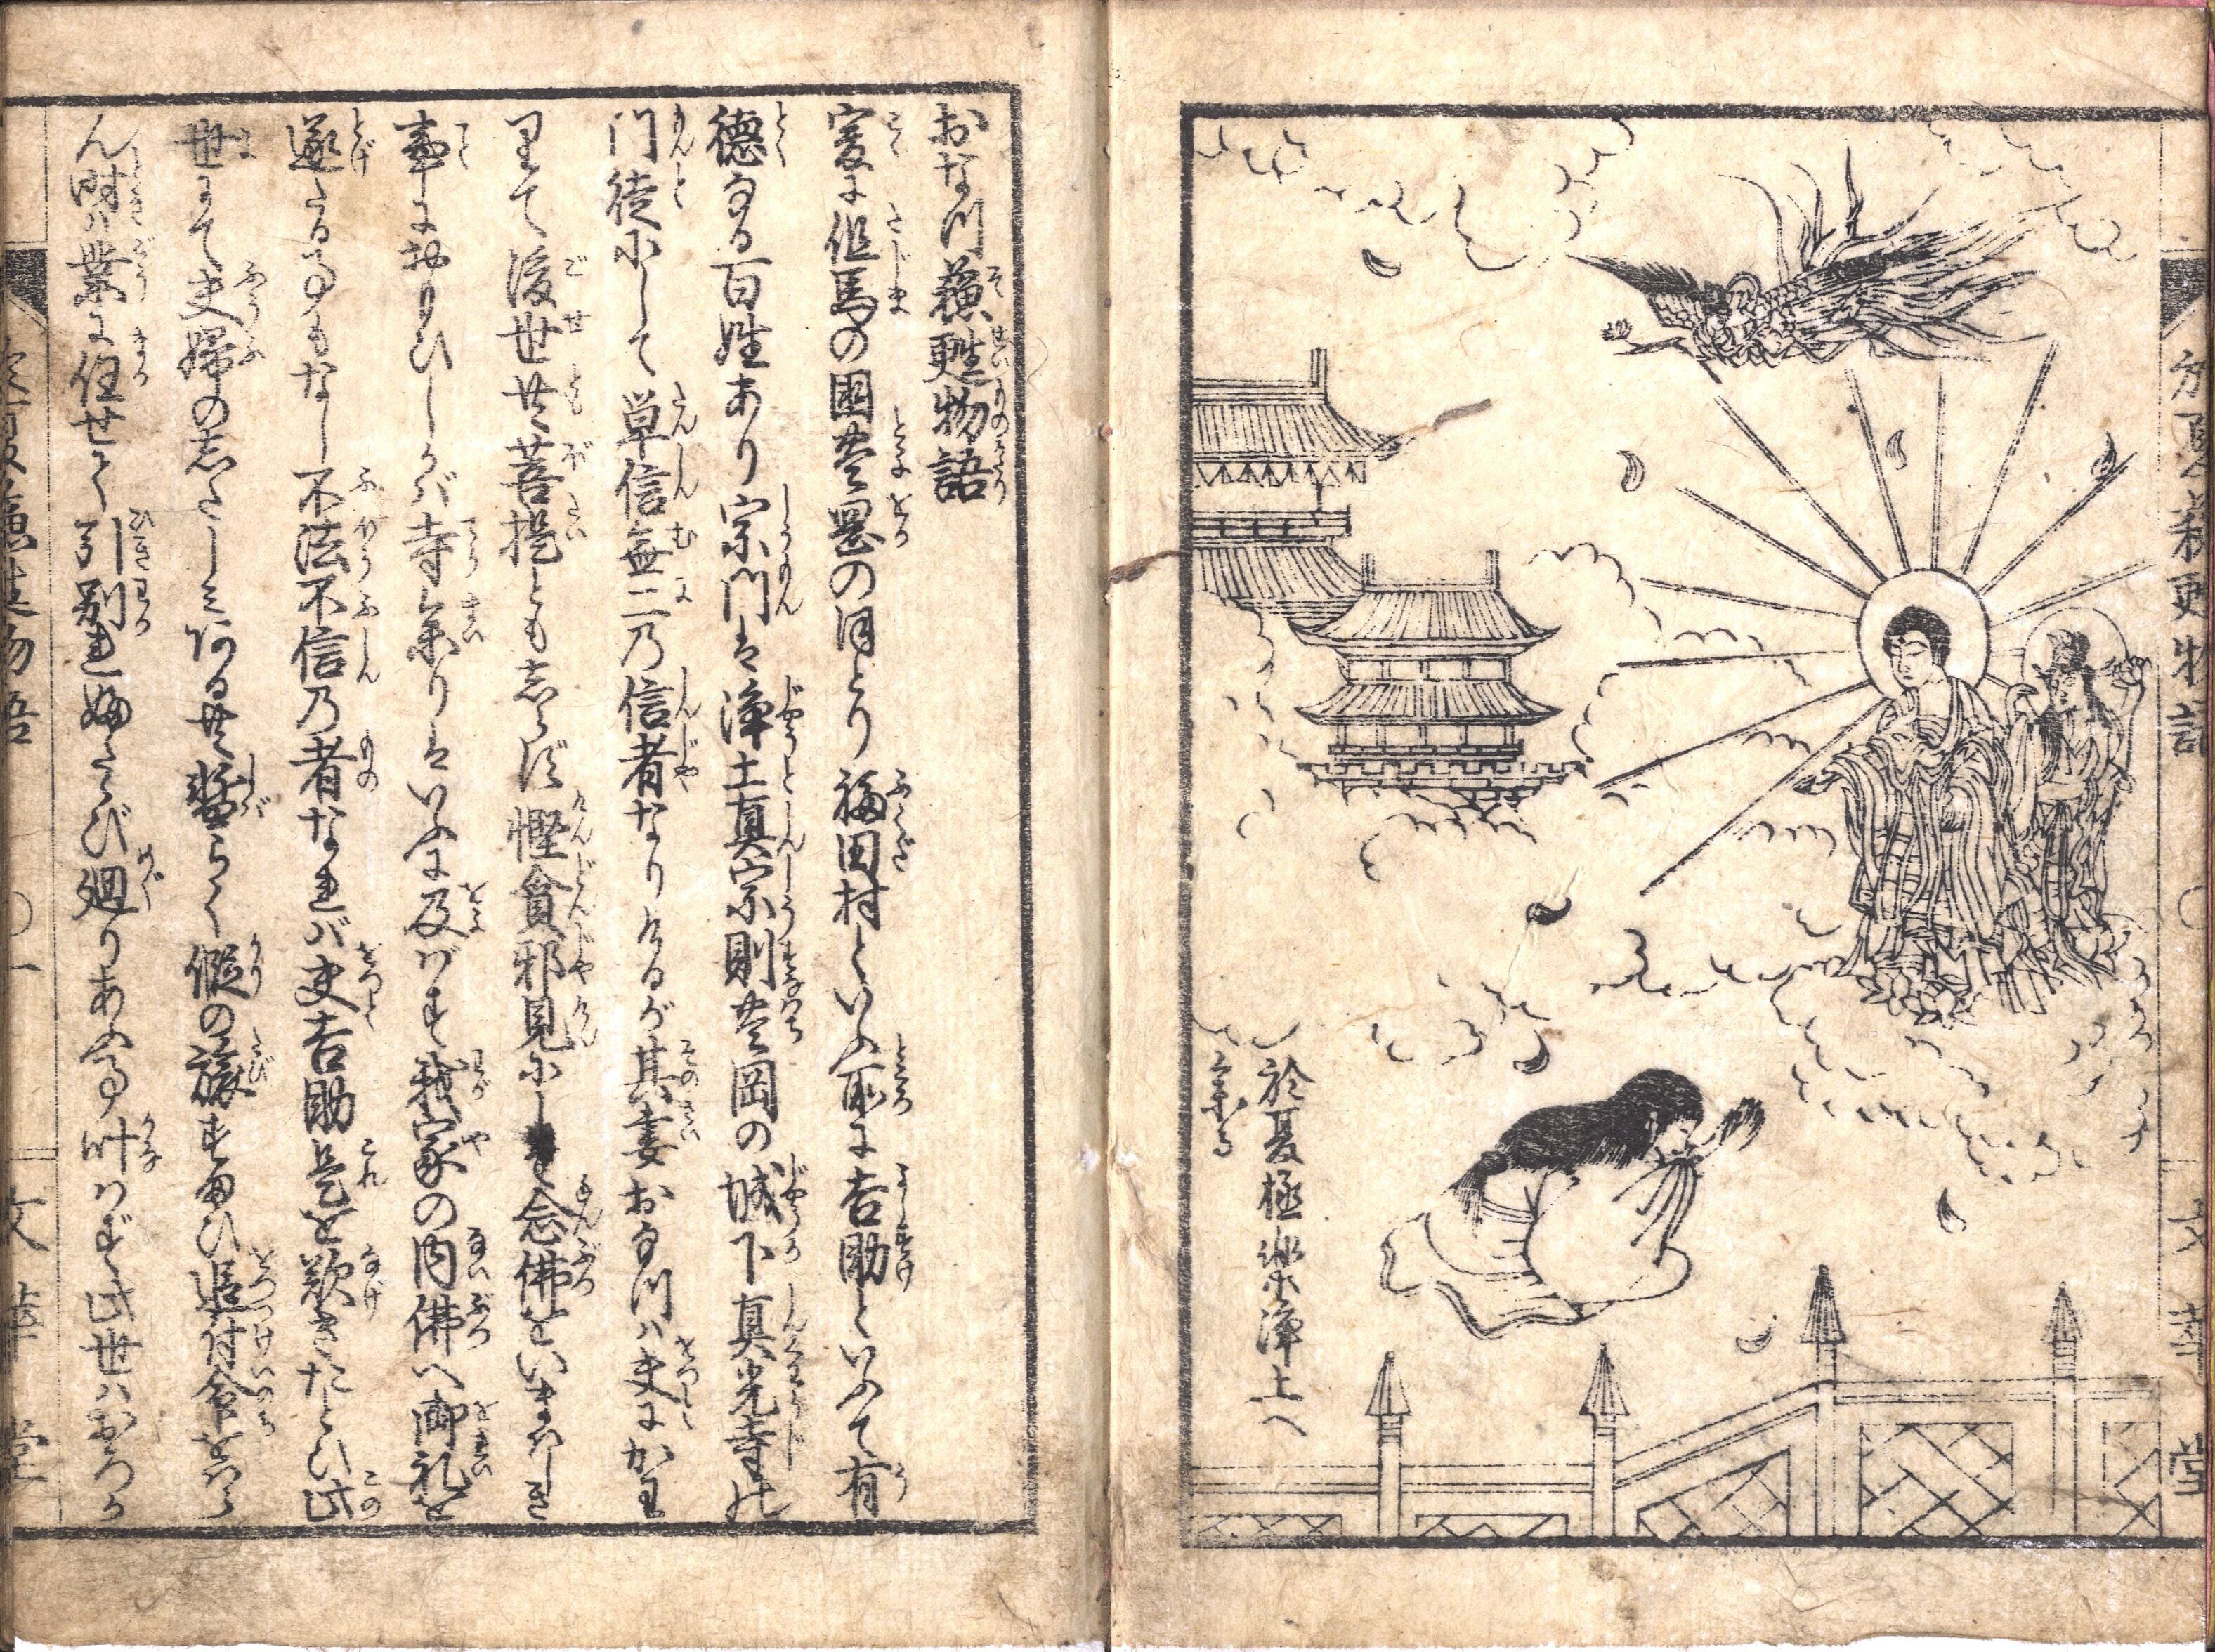 於夏極楽浄土へ
参る
おなつ蘓甦物語
爰に但馬の国豊岡のほとり福田村といふ所に吉助といふて有
徳なる百姓あり宗門は浄土真宗則豊岡の城下真光寺の
門徒にして単信無二乃信者なりけるが其妻おなつハ夫にかわ
りて後世共菩提ともしらず慳貪邪見にして念佛をいまはしき
事におもひしかバ寺参りはいふに及バず我家の内佛へ御礼を
遂たる事もなし不法不信乃者なれバ夫吉助是を歎きたとひ此
世にて夫婦のしたしみある共暫らく仮の旅すまひ追付命をはら
ん時ハ業に任せて引別れふたゝび廻りあふ事叶ハず此世ハおろか